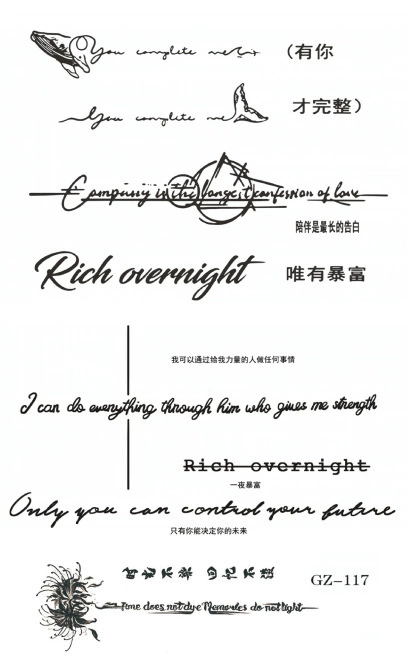 You complete me
（有你
You complete me
才完整）
Company is the longest confession of love
陪伴是最长的告白
Rich overnight
唯有暴富
我可以通过给我力量的人做任何事情
I can do everything through him who gives me strength
Rich overnight
一夜暴富
Only you can control your future
只有你能决定你的未来
时 不 回忆不
GZ-117
Time does not dye Memories do not light